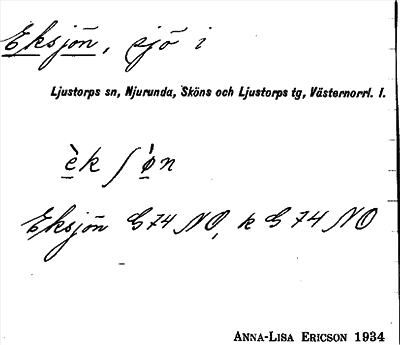 Eksjön, sjö i
Ljustorps sn, Njurunda, Sköns och Ljustorps tg, Västernorrl. l.
è̱kʃø̱̀n
Eksjön G 74 NO, k G 74 NO
ANNA-LISA ERICSON 1934